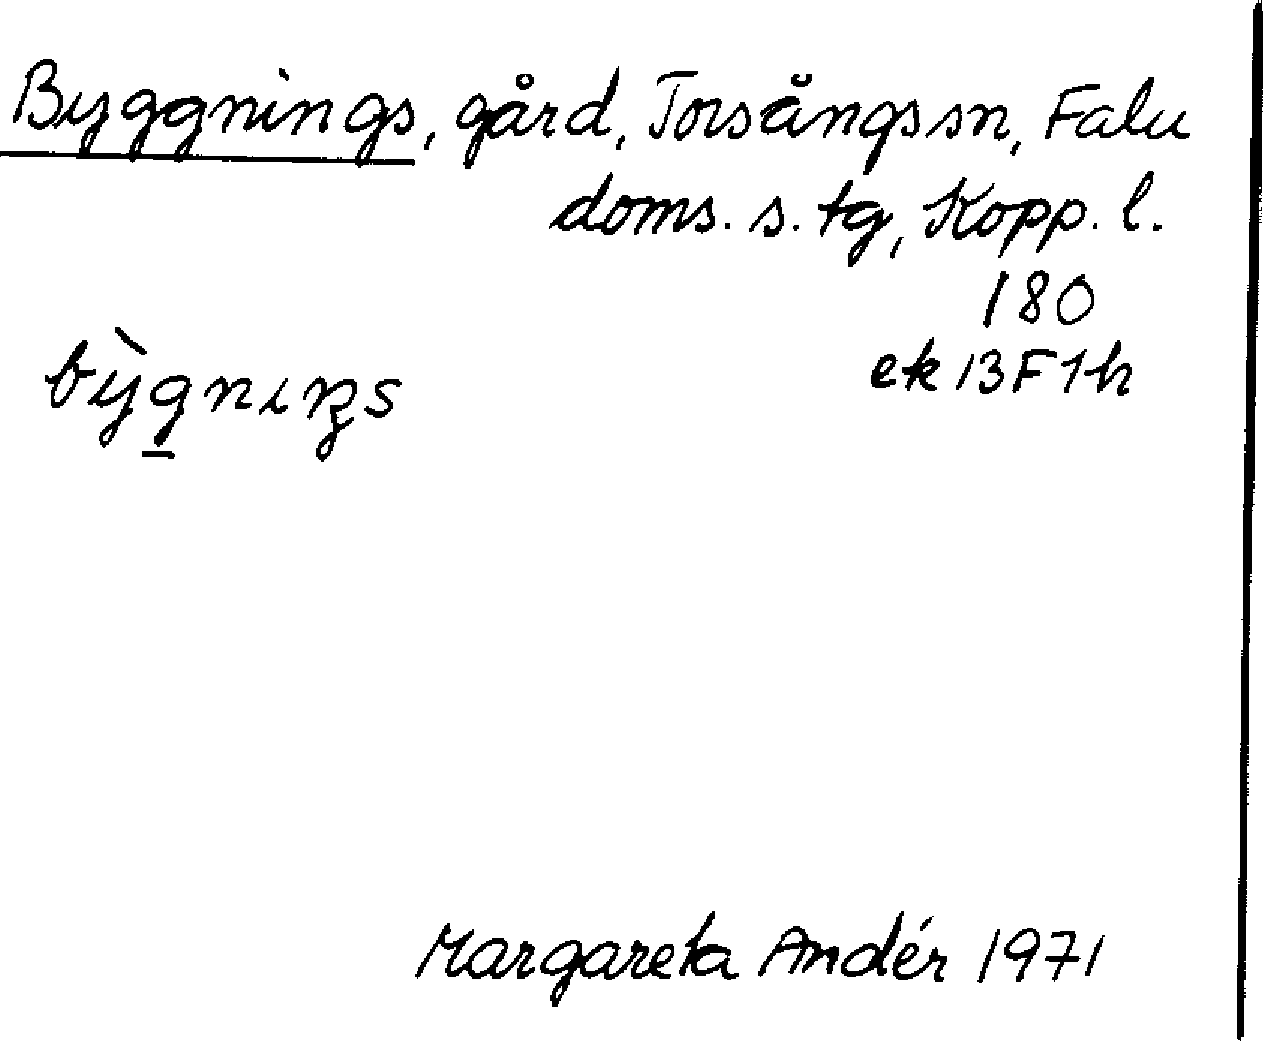 Byggnings, gård, Torsångs sn, Falu
doms. s. tg, Kopp. l.
180
ek 13F1h
bỳgnıŋs
Margareta Andér 1971